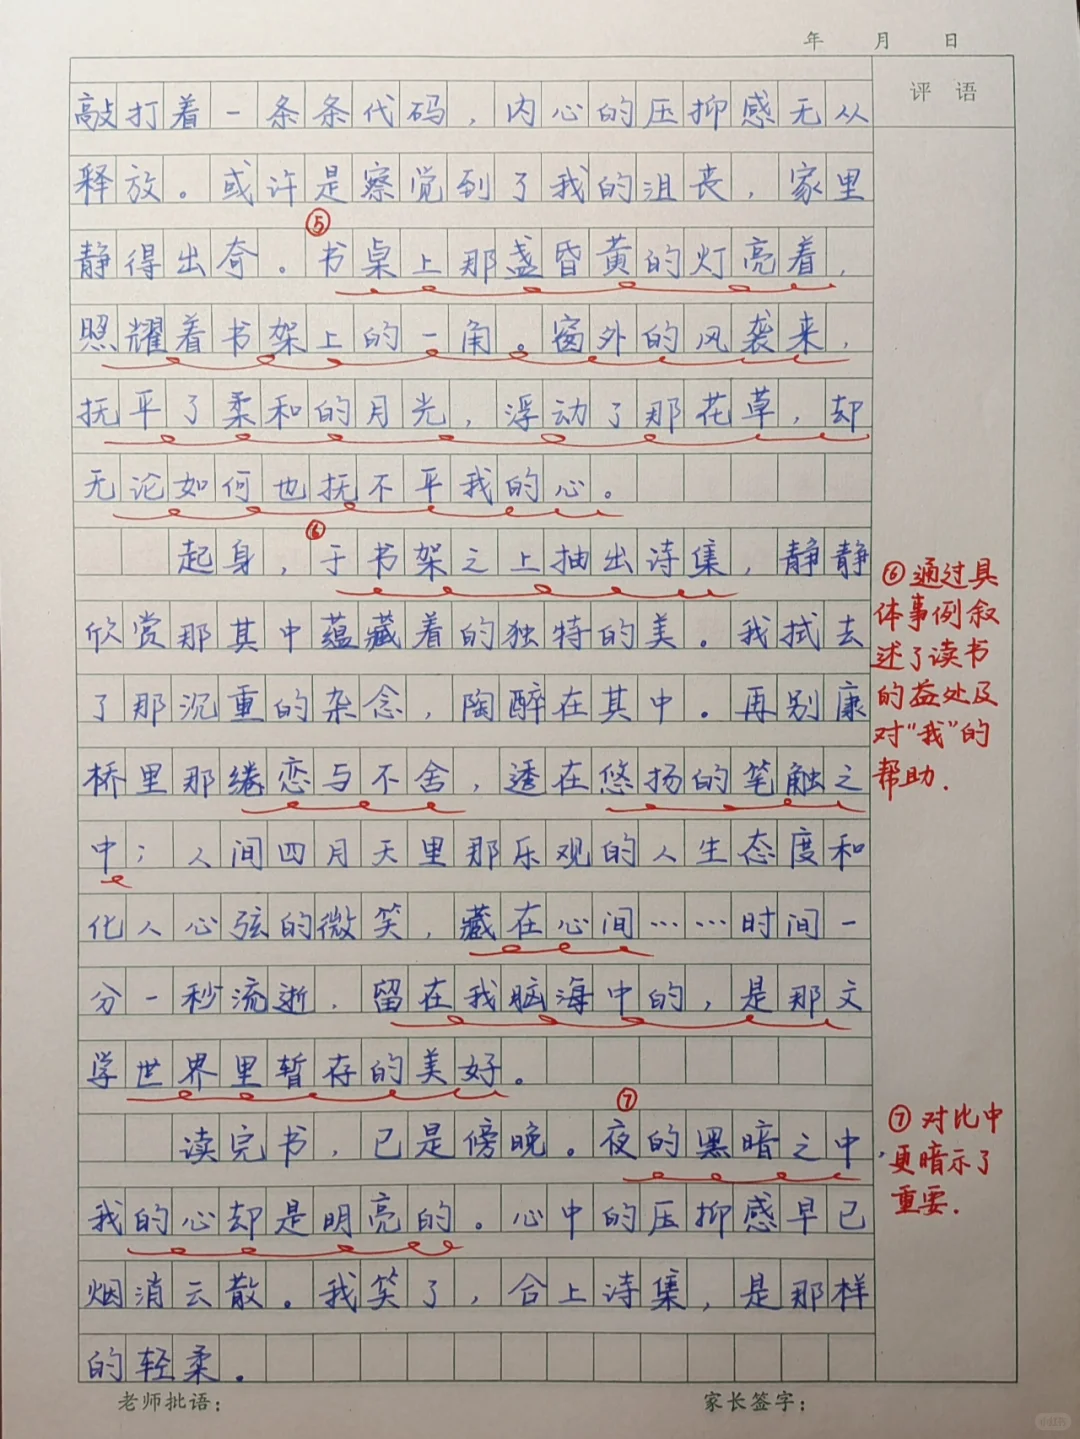 年 月 日
评 语
敲打着一条条代码，内心的压抑感无从
释放。或许是察觉到了我的沮丧，家里
⑤
静得出奇。书桌上那盏昏黄的灯亮着，
照耀着书架上的一角。窗外的风袭来，
抚平了柔和的月光，浮动了那花草，却
无论如何也抚不平我的心。
⑥
起身，于书架之上抽出诗集，静静
欣赏那其中蕴藏着的独特的美。我拭去
了那沉重的杂念，陶醉在其中。再别康
桥里那绻恋与不舍，透在悠扬的笔触之
中；人间四月天里那乐观的人生态度和
化人心弦的微笑，藏在心间……时间一
分一秒流逝，留在我脑海中的，是那文
学世界里暂存的美好。
⑦
读完书，已是傍晚。夜的黑暗之中，
我的心却是明亮的。心中的压抑感早已
烟消云散。我笑了，合上诗集，是那样
的轻柔。
⑥通过具
体事例叙
述了读书
的益处及
对“我”的
帮助.
⑦对比中
更暗示了
重要.
老师批语：
家长签字：
小红书